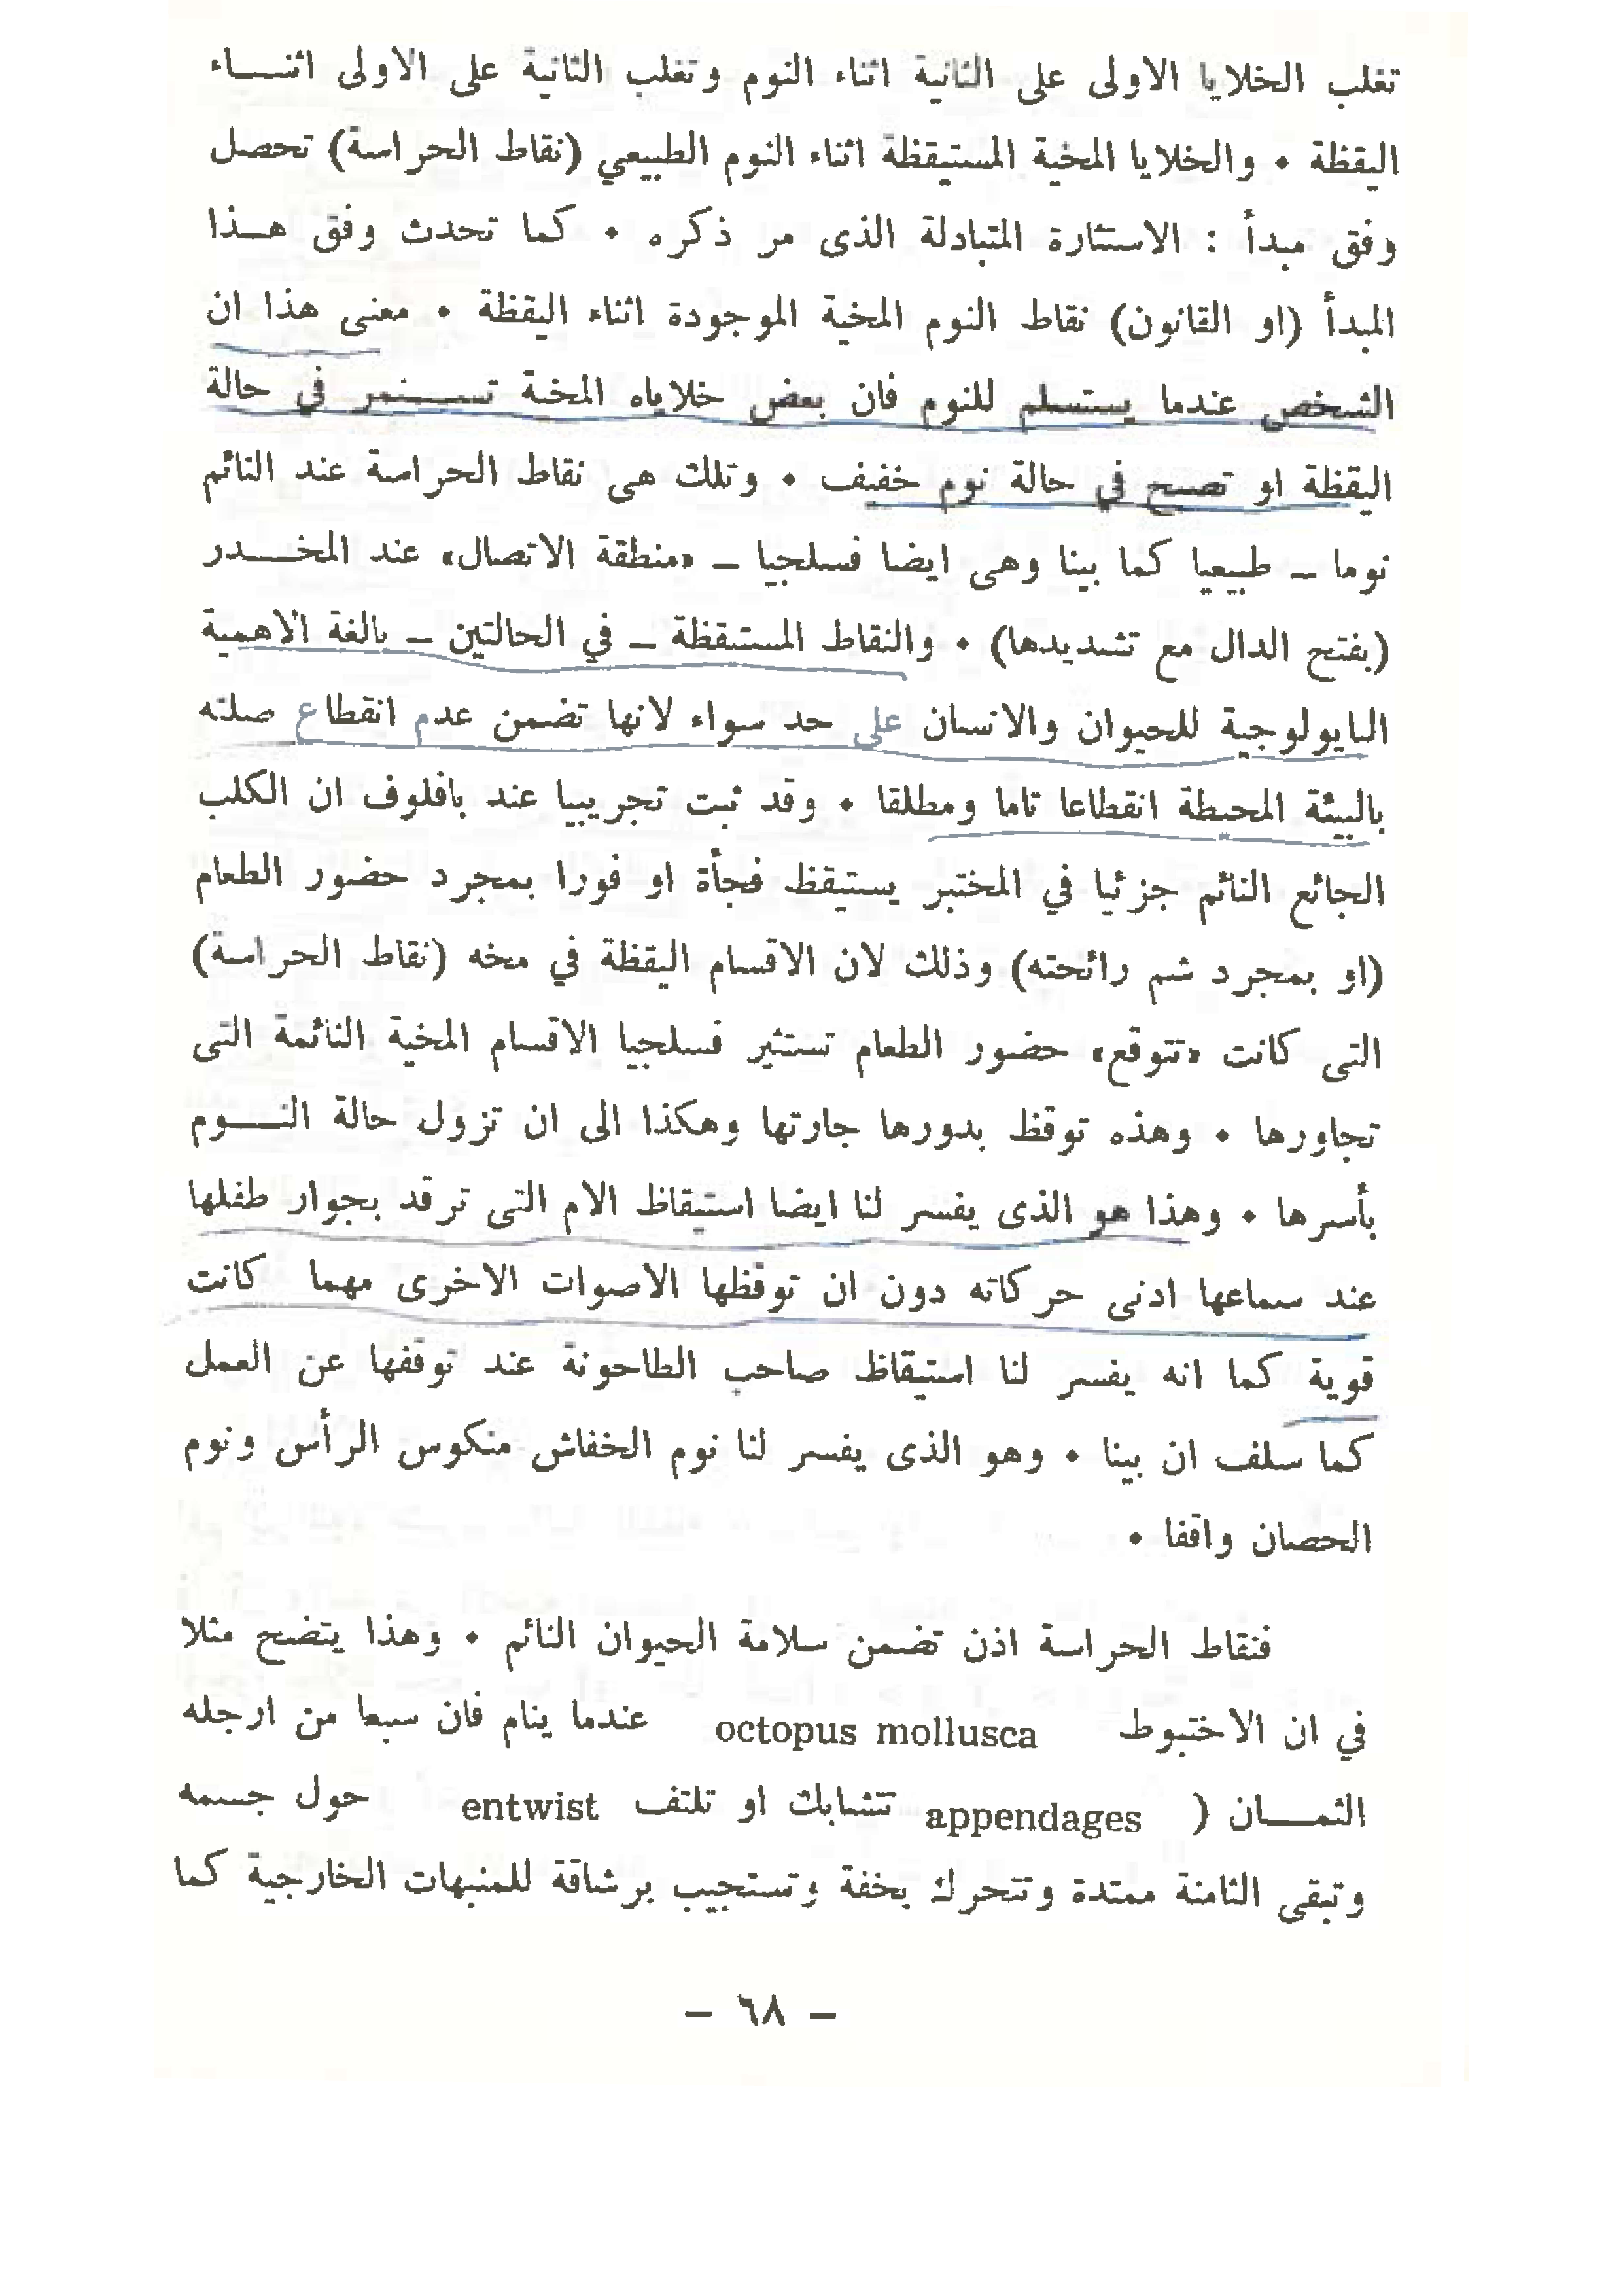 تغلب الخلايا الاولى على الثانية اثناء النوم وتغلب الثانية على الاولى اثنـــاء
اليقظة • والخلايا المخية المستيقظة اثناء النوم الطبيعي (نقاط الحراسة) تحصل
وفق مبدأ : الاستثارة المتبادلة الذى مر ذكره • كما تحدث وفق هـــذا
المبدأ (او القانون) نقاط النوم المخية الموجودة اثناء اليقظة • معنى هذا ان
الشخص عندما يستسلم للنوم فان بعض خلاياه المخية تســـتمر في حالة
اليقظة او تصبح في حالة نوم خفيف • وتلك هى نقاط الحراسة عند النائم
نوما – طبيعيا كما بينا وهى ايضا فسلجيا – «منطقة الاتصال» عند المخـــدر
(بفتح الدال مع تشديدها) • والنقاط المستيقظة – في الحالتين – بالغة الاهمية
البايولوجية للحيوان والانسان على حد سواء لانها تضمن عدم انقطاع صلته
بالبيئة المحيطة انقطاعا تاما ومطلقا • وقد ثبت تجريبيا عند بافلوف ان الكلب
الجائع النائم جزئيا في المختبر يستيقظ فجأة او فورا بمجرد حضور الطعام
(او بمجرد شم رائحته) وذلك لان الاقسام اليقظة في مخه (نقاط الحراسة)
التى كانت «تتوقع» حضور الطعام تستثير فسلجيا الاقسام المخية النائمة التى
تجاورها • وهذه توقظ بدورها جارتها وهكذا الى ان تزول حالة النـــوم
بأسرها • وهذا هو الذى يفسر لنا ايضا استيقاظ الام التى ترقد بجوار طفلها
عند سماعها ادنى حركاته دون ان توقظها الاصوات الاخرى مهما كانت
قوية كما انه يفسر لنا استيقاظ صاحب الطاحونة عند توقفها عن العمل
كما سلف ان بينا • وهو الذى يفسر لنا نوم الخفاش منكوس الرأس ونوم
الحصان واقفا •
فنقاط الحراسة اذن تضمن سلامة الحيوان النائم • وهذا يتضح مثلا
في ان الاختبوط octopus mollusca عندما ينام فان سبعا من ارجله
الثمـــان ( appendages تتشابك او تلتف entwist حول جسمه
وتبقى الثامنة ممتدة وتتحرك بخفة وتستجيب برشاقة للمنبهات الخارجية كما
– ٦٨ –